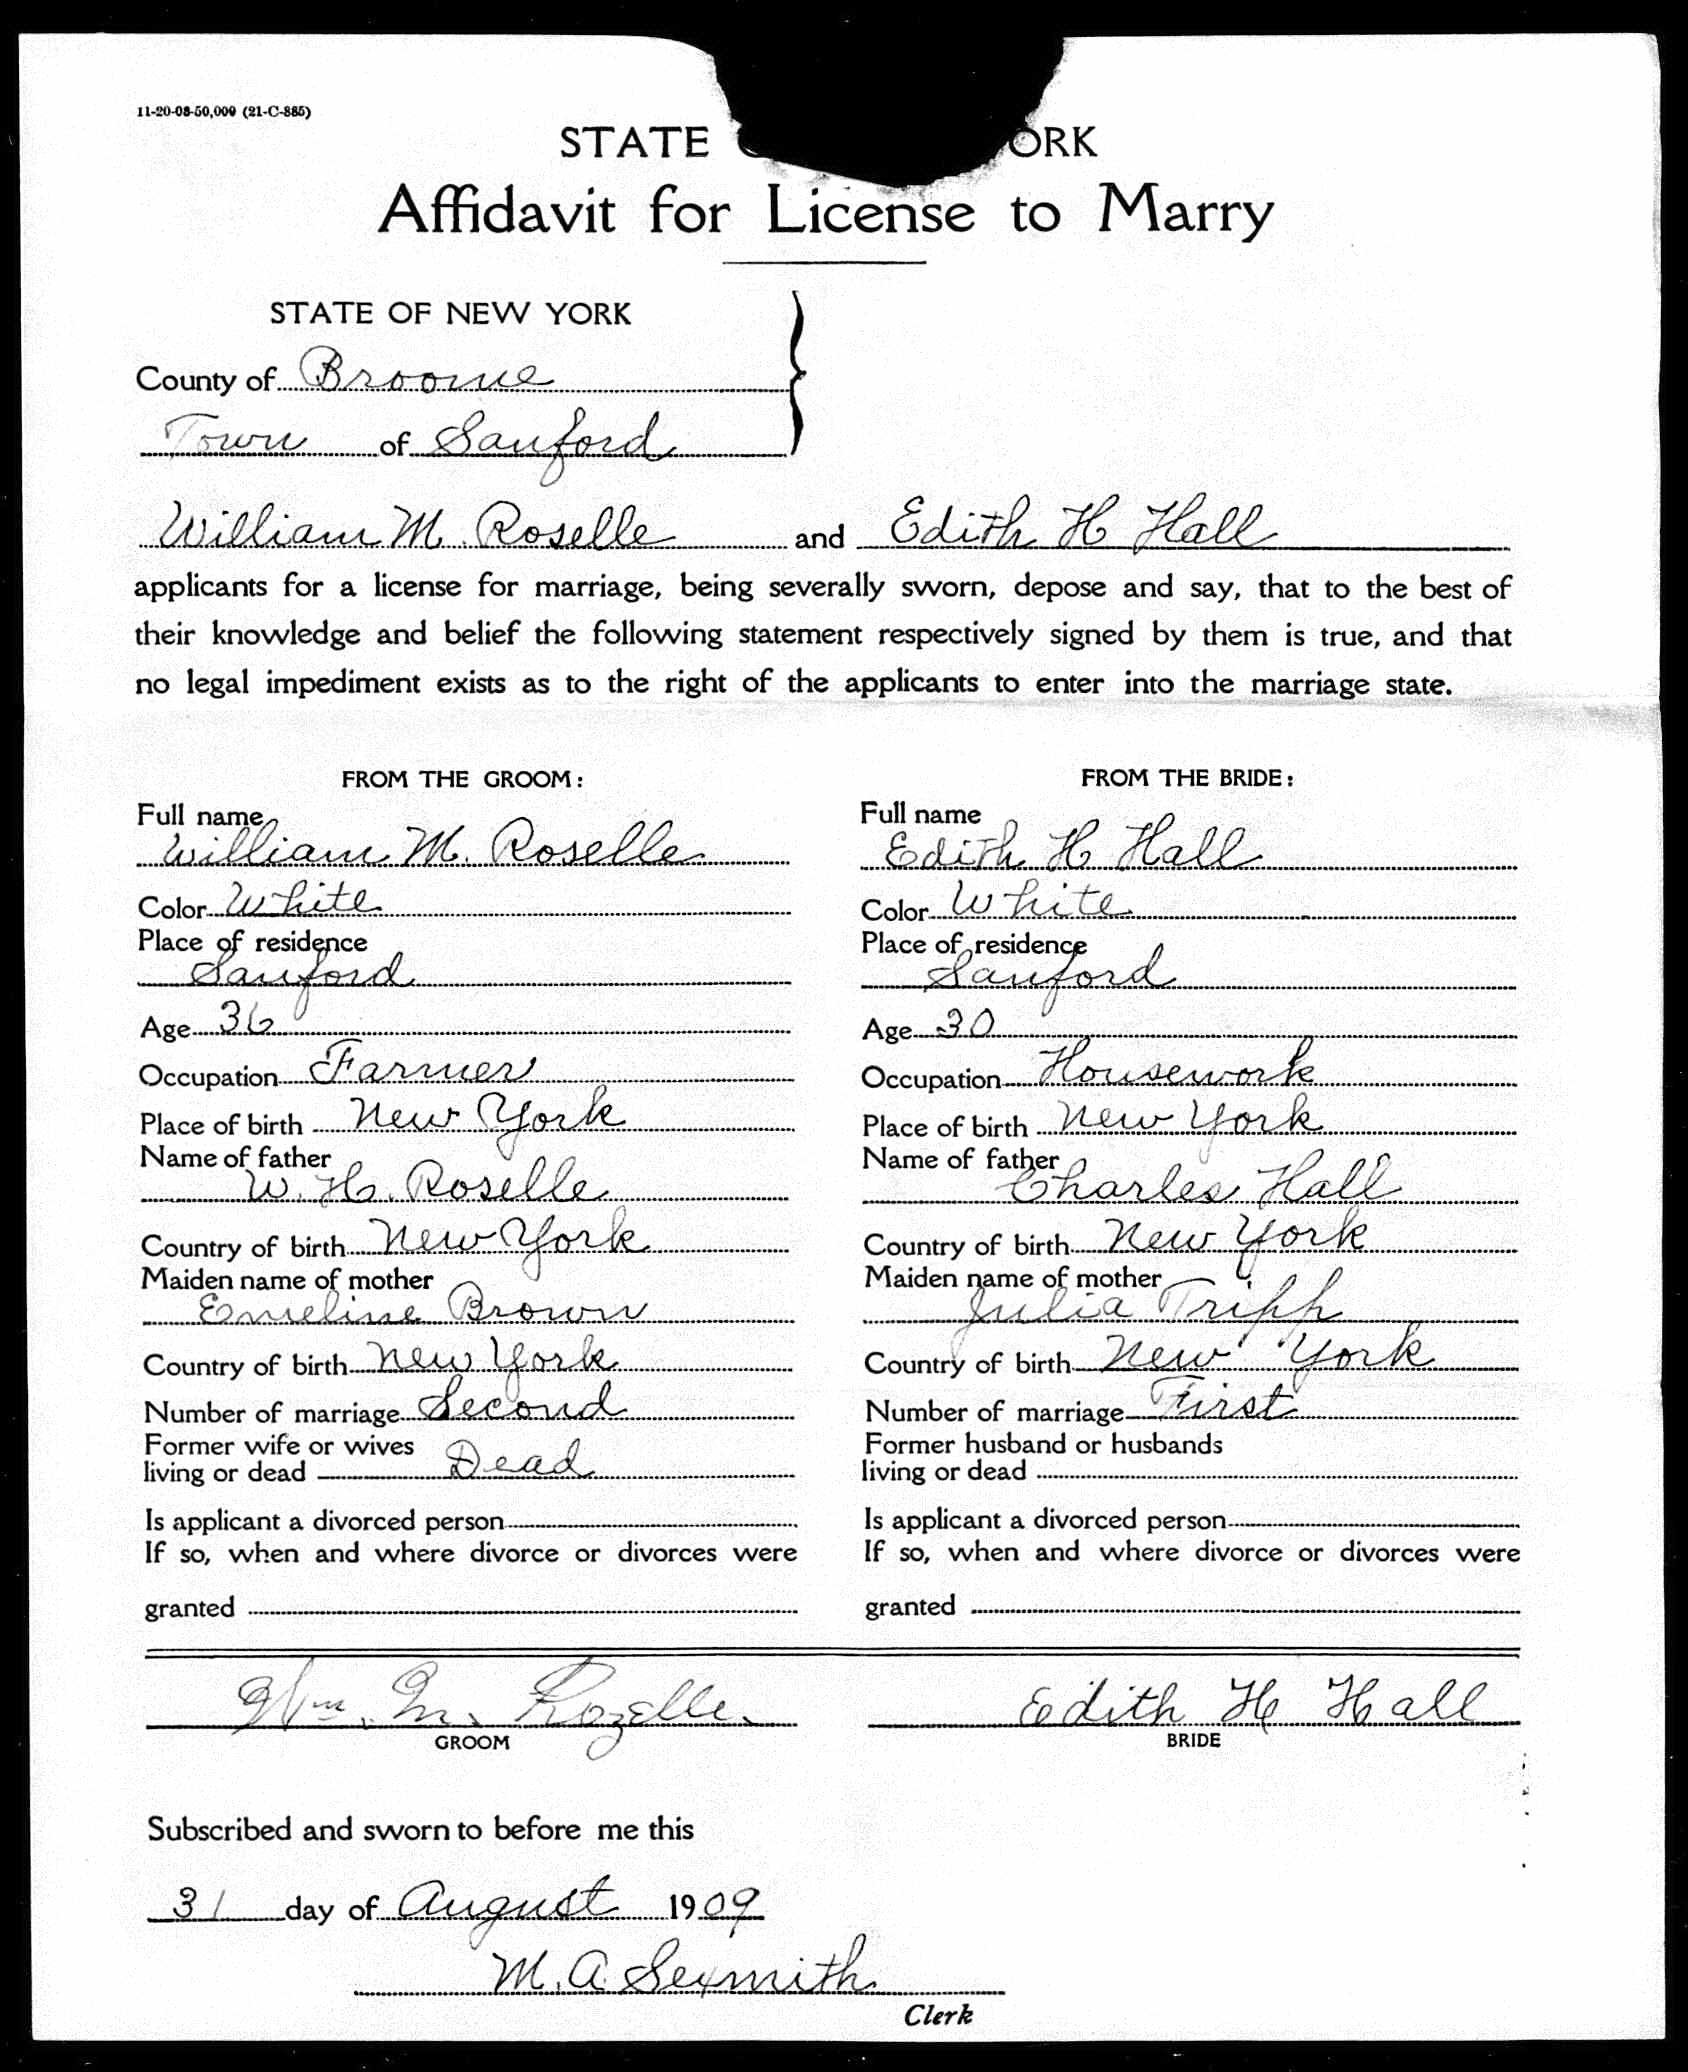 11-20-08-50,000 (21-C-885)
STATE O ORK
Affidavit for License to Marry
STATE OF NEW YORK
County of Broome
Town of Sanford
William M. Roselle and Edith H Hall
applicants for a license for marriage, being severally sworn, depose and say, that to the best of
their knowledge and belief the following statement respectively signed by them is true, and that
no legal impediment exists as to the right of the applicants to enter into the marriage state.
FROM THE GROOM:
Full name
William M. Roselle
Color White
Place of residence
Sanford
Age 36
Occupation Farmer
Place of birth New York
Name of father
W. H. Roselle
Country of birth New York
Maiden name of mother
Emeline Brown
Country of birth New York
Number of marriage Second
Former wife or wives
living or dead Dead
Is applicant a divorced person
If so, when and where divorce or divorces were
granted
Wm. M. Rozelle.
GROOM
FROM THE BRIDE:
Full name
Edith H Hall
Color White
Place of residence
Sanford
Age 30
Occupation Housework
Place of birth New York
Name of father
Charles Hall
Country of birth New York
Maiden name of mother
Julia Tripp
Country of birth New York
Number of marriage First
Former husband or husbands
living or dead
Is applicant a divorced person
If so, when and where divorce or divorces were
granted
Edith H Hall
BRIDE
Subscribed and sworn to before me this
31 day of August 1909
M. A. Sexmith
Clerk